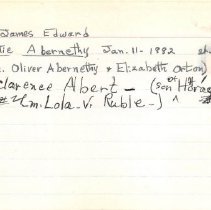 James Edward
tie Abernethy Jan. 11-1882
. Oliver Abernethy & Elizabeth Orton)
larence Albert - (son of Horac
m. Lola V. Ruble-)